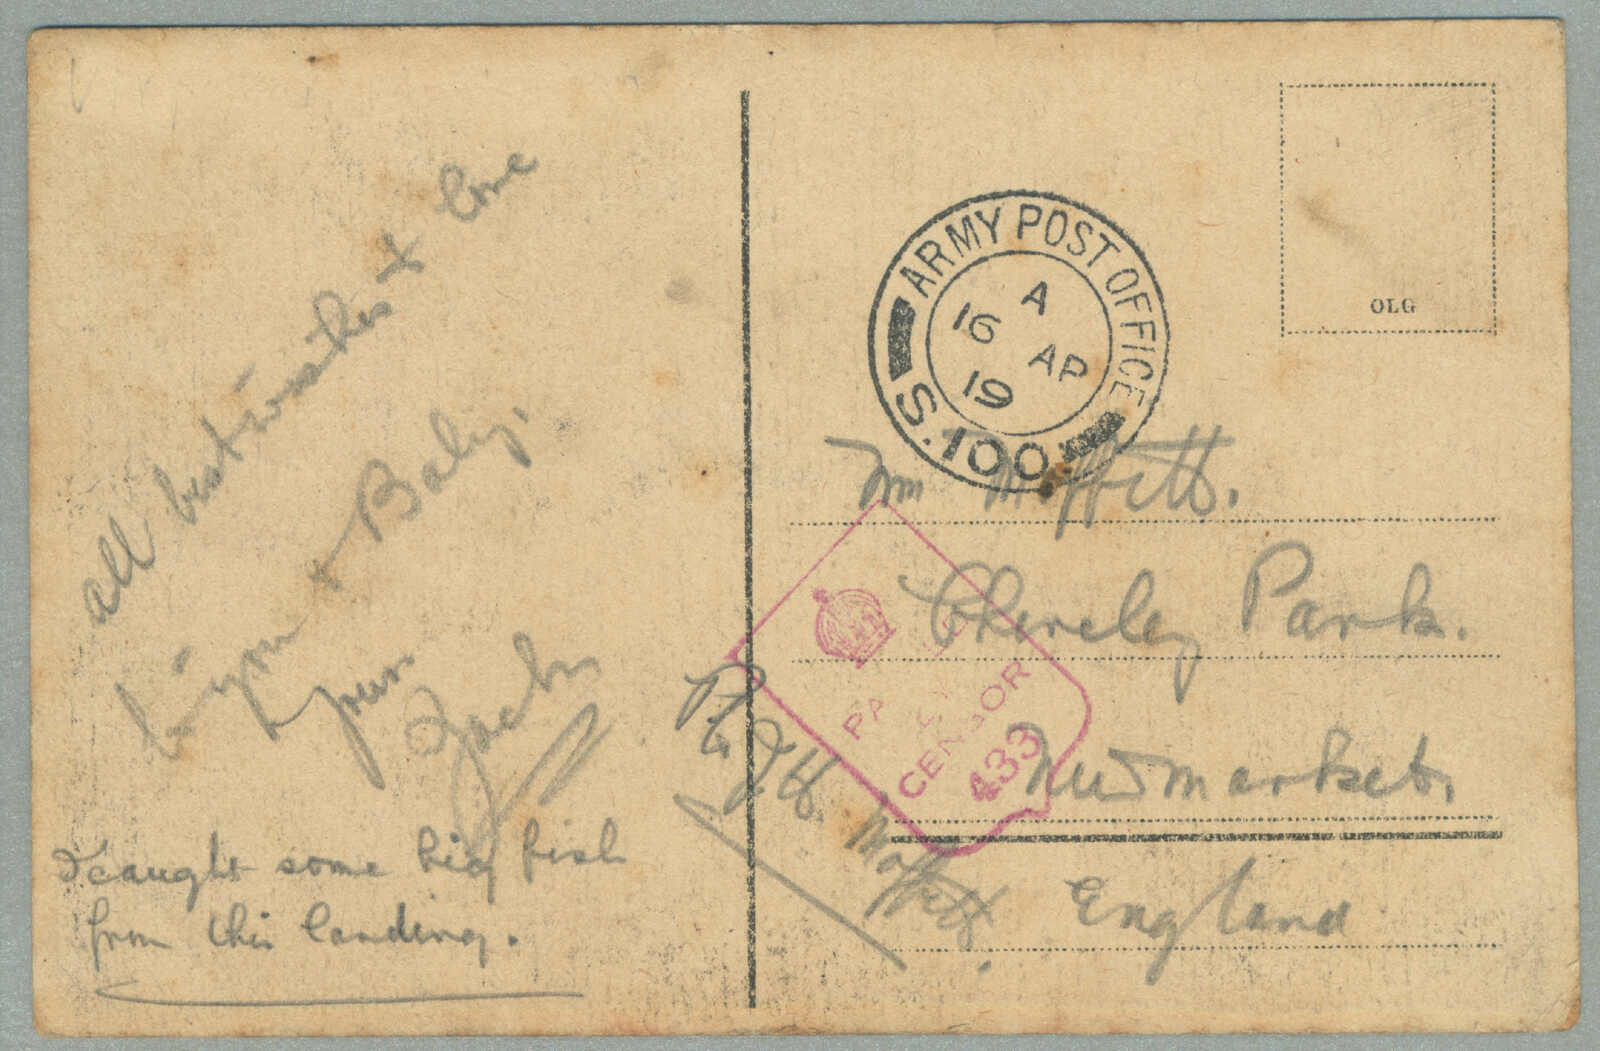 all best wishes + love
to you + Baby.
your
Jack
I caught some big fish
from this landing.
ARMY POST OFFICE
A
16 AP
19
S.100.
OLG
Moffett.
Park.
Newmarket,
England
CENSOR
433
Moffett.